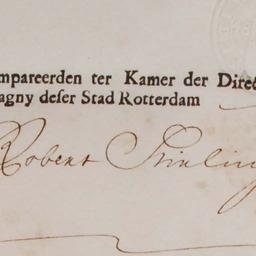 mpareerden ter Kamer der Direc
agny deser Stad Rotterdam
Robert